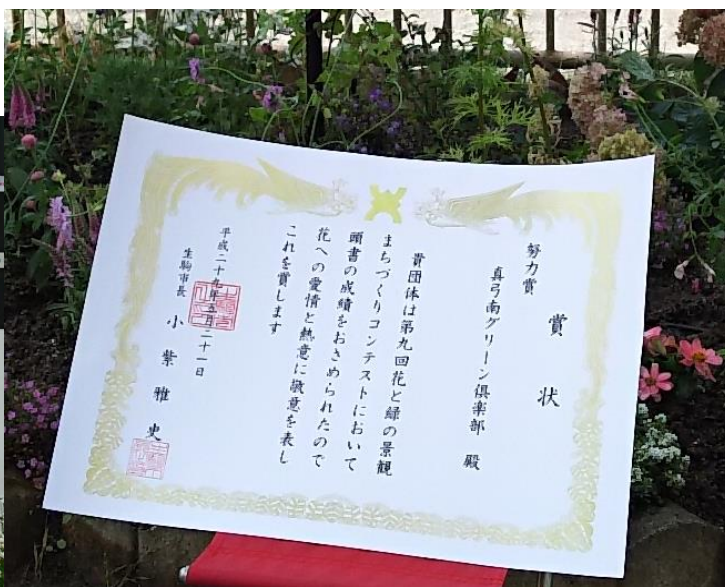 賞状
努力賞
真弓南グリーン倶楽部 殿
貴団体は第九回花と緑の景観
まちづくりコンテストにおいて
頭書の成績をおさめられたので
花への愛情と熱意に敬意を表し
これを賞します
平成二十九年五月二十一日
生駒市長 小紫雅史